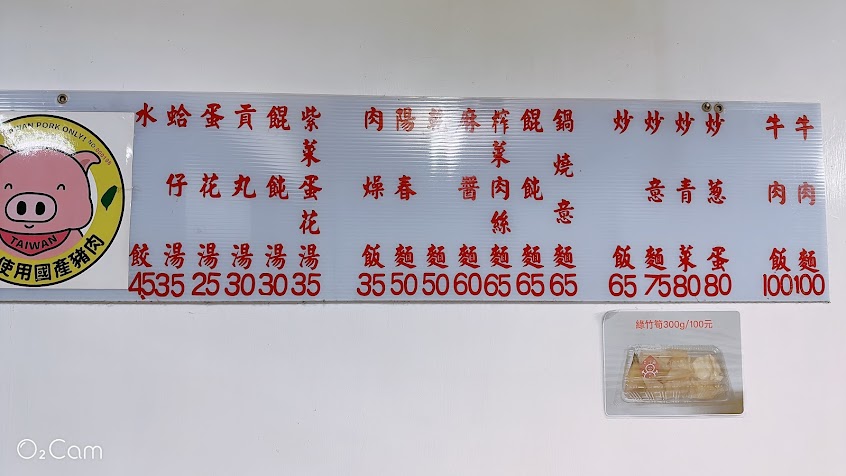 WAN PORK ONLY!
TAIWAN
使用國產豬肉
水餃 45
蛤仔湯 35
蛋花湯 25
貢丸湯 30
餛飩湯 30
紫菜蛋花湯 35
肉燥飯 35
陽春麵 50
麵 50
麻醬麵 60
榨菜肉絲麵 65
餛飩麵 65
鍋燒意麵 65
炒飯 65
炒意麵 75
炒青菜 80
炒蔥蛋 80
牛肉飯 100
牛肉麵 100
綠竹筍300g/100元
O2Cam